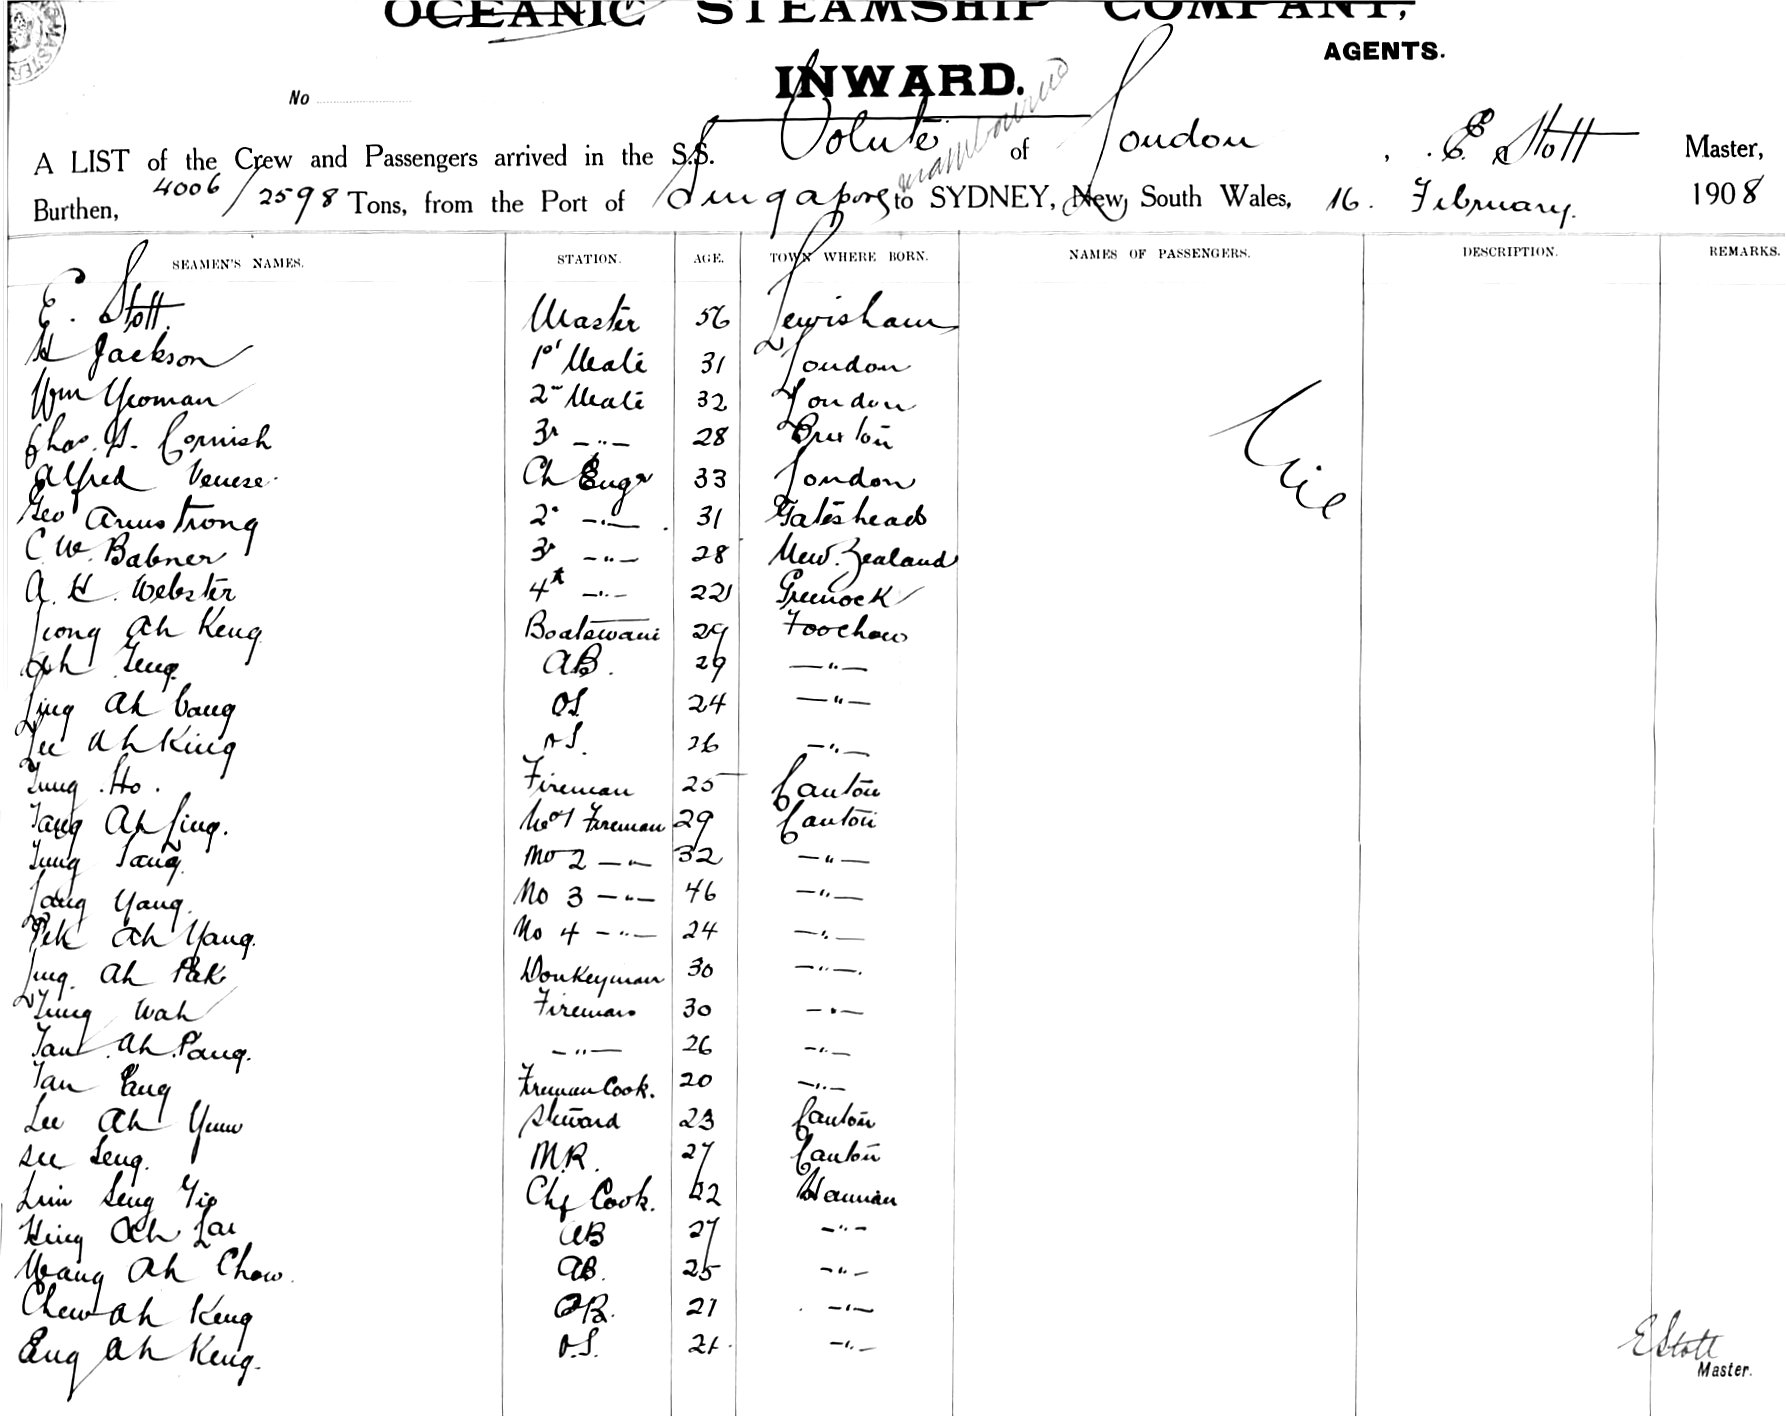 OCEANIC STEAMSHIP COMPANY,
AGENTS.
INWARD.
No
A LIST of the Crew and Passengers arrived in the S.S. Volute of London, E. Stott Master,
Burthen, 4006/2598 Tons, from the Port of Singapore to SYDNEY, New South Wales, 16. February. 1908
SEAMEN'S NAMES. STATION. AGE. TOWN WHERE BORN. NAMES OF PASSENGERS. DESCRIPTION. REMARKS.
E. Stott. Master 56 Lewisham
H Jackson 1st Mate 31 London
Wm Yeoman 2 Mate 32 London
Chas. H. Cornish 3r —"— 28 Brixton
Nil
Alfred Venese Ch Engr 33 London
Geo Armstrong 2 —"— 31 Gateshead
C. W. Babner 3r —"— 28 New Zealand
A. H. Webster 4th —"— 22 Greenock
Jeong Ah Keng Boatswain 29 Foochow
Ah Teng. AB. 29 —"—
Ling Ah Cang OS. 24 —"—
Lee Ah King OS. 26 —"—
Tung Ho. Fireman 25 Canton
Tang Ah Ling. No 1 Fireman 29 Canton
Tung Tang. No 2 —"— 32 —"—
Yang. No 3 —"— 46 —"—
Pek Ah Yang. No 4 —"— 24 —"—
Ah Pak Donkeyman 30 —"—
Tung Wah Fireman 30 —"—
Tan Ah Pang. —"— 26 —"—
Tan Eang Fireman Cook. 20 —"—
Lee Ah Yum Steward 23 Canton
See Seng. M.R. 27 Canton
Lim Seng Yip Chf Cook. 22 Hainan
Hing Ah Lai AB 27 —"—
Wang Ah Chow. AB. 25 —"—
Chew Ah Keng AB. 27 —"—
Eng Ah Keng. O.S. 21 —"—
E Stott
Master.